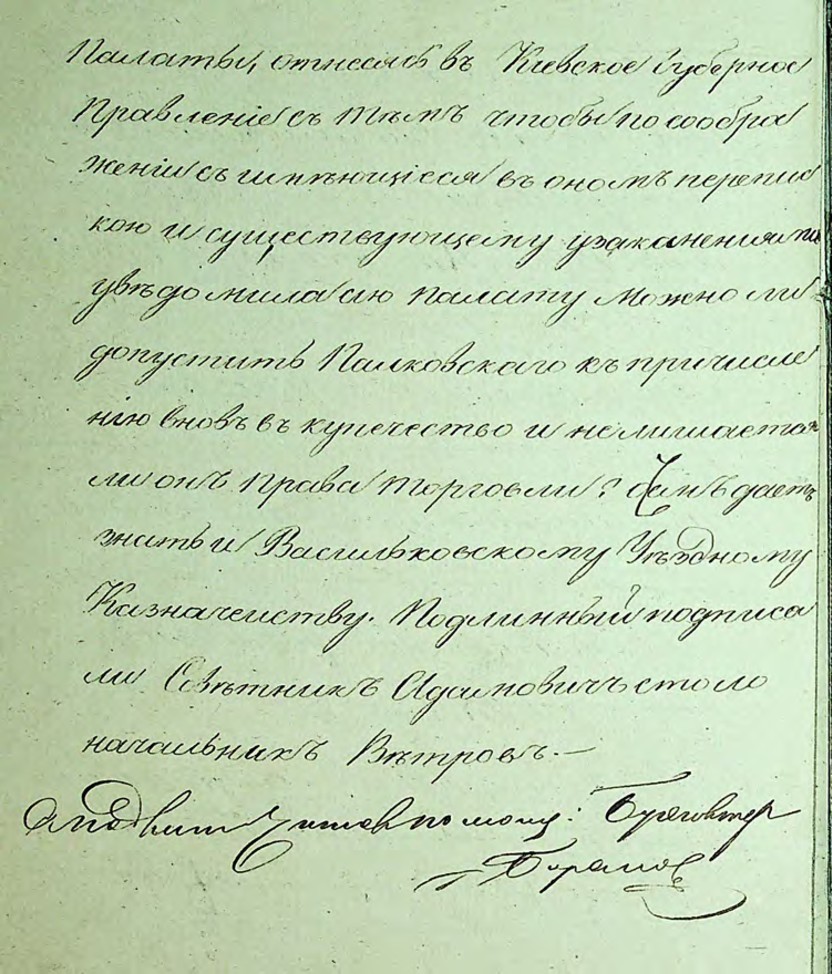 Палаты, отнестись въ Кіевское Губерное
Правленіе съ тѣмъ чтобы по сообра
женіи съ имѣющіеся въ ономъ перепис
кою и существующему узаканениямъ
увѣдомила сію палату можно ли
допустить Палковскаго къ причисле
нію вновь въ купечество и нелишается
ли онъ права торговли? о чемъ даетъ
знать и Васильковскому Уѣздному
Казначеиству. Подлинный подписа
ли Совѣтникъ Адамовичъ столо
начальникъ Вѣтровъ.—
помощ: Бухгалтер